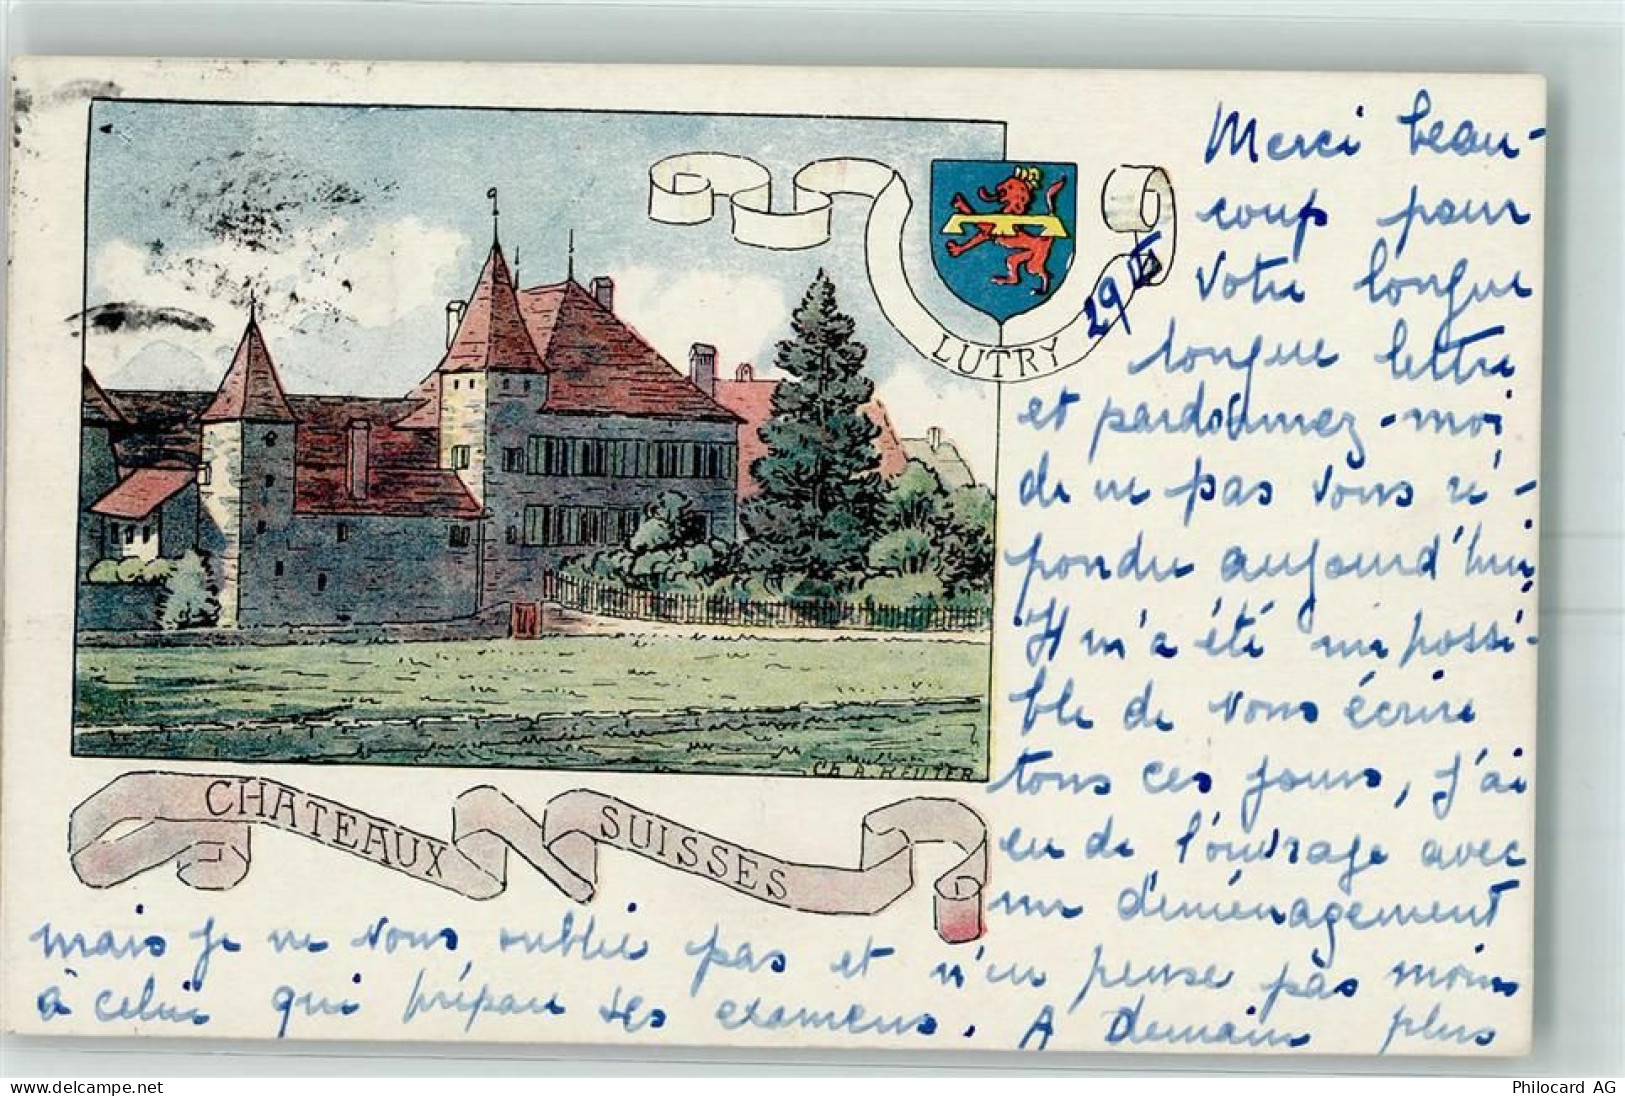 Merci beau-
coup pour
votre longue
longue lettre
et pardonnez-moi
de ne pas vous ré-
pondre aujourd'hui
Il m'a été impossi-
ble de vous écrire
tous ces jours, j'ai
eu de l'ouvrage avec
un déménagement
mais je ne vous oublie pas et n'en pense pas moins
à celui qui prépare ses examens. A demain plus
LUTRY
29
CH. A. REUTER
CHATEAUX SUISSES
www.delcampe.net
Philocard AG